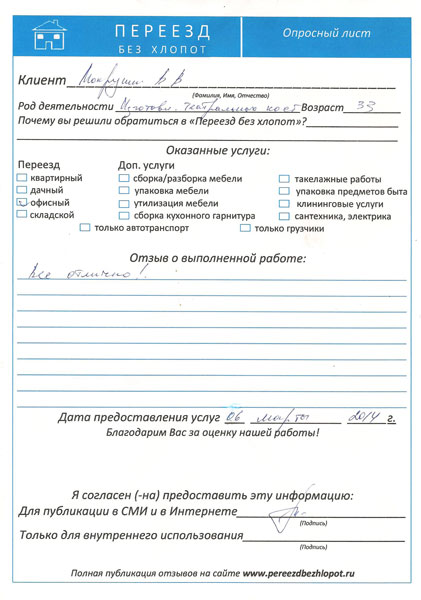 ПЕРЕЕЗД
БЕЗ ХЛОПОТ
Опросный лист
Клиент В В
(Фамилия, Имя, Отчество)
Род деятельности Изготовл. театральных кост Возраст 33
Почему вы решили обратиться в «Переезд без хлопот»?
Оказанные услуги:
Переезд
квартирный
дачный
офисный
складской
Доп. услуги
сборка/разборка мебели
упаковка мебели
утилизация мебели
сборка кухонного гарнитура
такелажные работы
упаковка предметов быта
клининговые услуги
сантехника, электрика
только автотранспорт
только грузчики
Отзыв о выполненной работе:
Все отлично!
Дата предоставления услуг 06 марта 2014 г.
Благодарим Вас за оценку нашей работы!
Я согласен (-на) предоставить эту информацию:
Для публикации в СМИ и в Интернете
(Подпись)
Только для внутреннего использования
(Подпись)
Полная публикация отзывов на сайте www.pereezdbezhlopot.ru